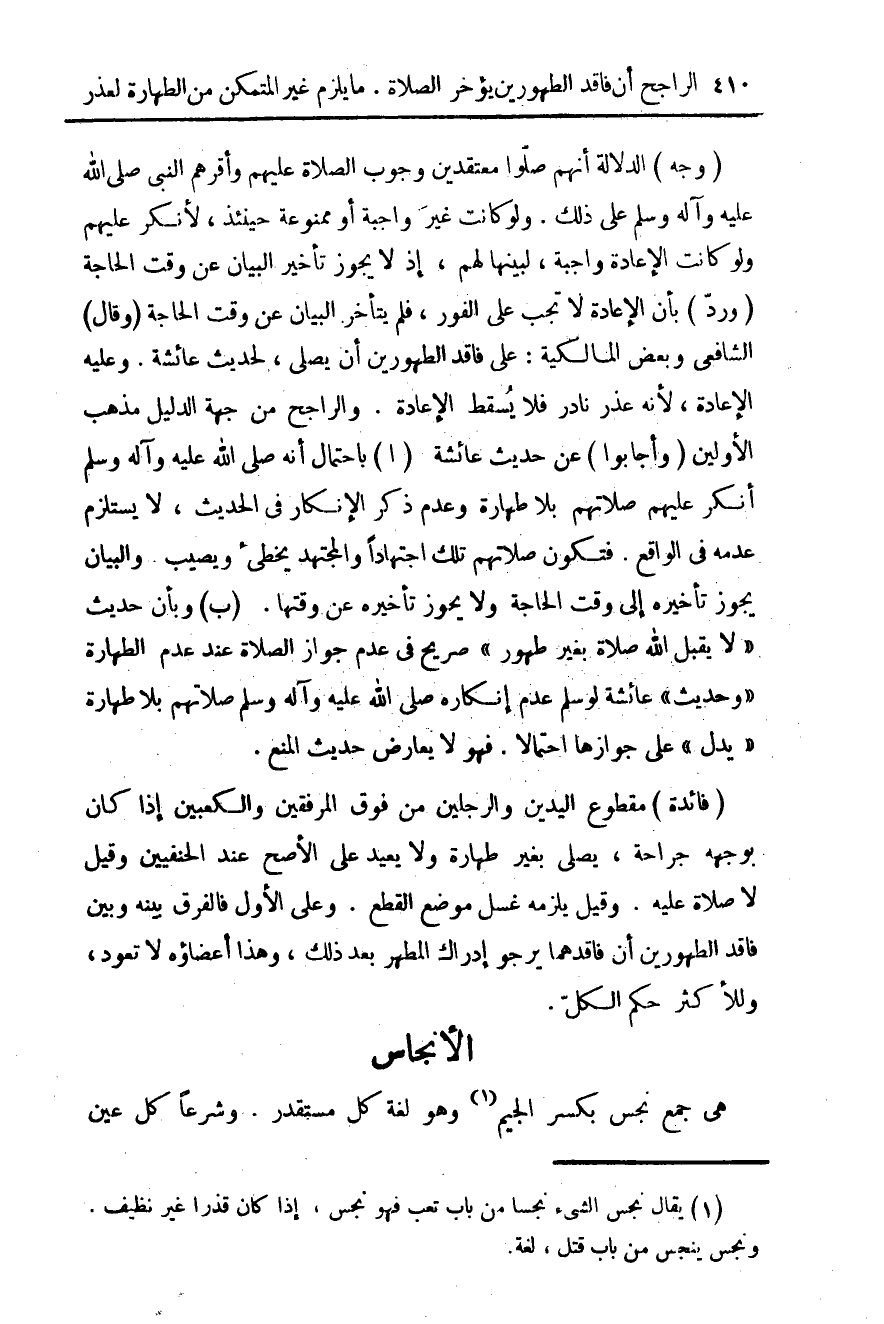 ٤١٠ الراجح أن فاقد الطهورين يؤخر الصلاة . ما يلزم غير المتمكن من الطهارة لعذر
( وجه ) الدلالة أنهم صلّوا معتقدين وجوب الصلاة عليهم وأقرهم النبى صلى الله
عليه وآله وسلم على ذلك . ولو كانت غيرَ واجبة أو ممنوعة حينئذ ، لأنكر عليهم
ولو كانت الإعادة واجبة ، لبينها لهم ، إذ لا يجوز تأخير البيان عن وقت الحاجة
( وردّ ) بأن الإعادة لا تجب على الفور ، فلم يتأخر البيان عن وقت الحاجة (وقال)
الشافعى وبعض المالكية : على فاقد الطهورين أن يصلى ، لحديث عائشة . وعليه
الإعادة ، لأنه عذر نادر فلا يُسقط الإعادة . والراجح من جهة الدليل مذهب
الأولين ( وأجابوا ) عن حديث عائشة (ا) باحتمال أنه صلى الله عليه وآله وسلم
أنكر عليهم صلاتهم بلا طهارة وعدم ذكر الإنكار فى الحديث ، لا يستلزم
عدمه فى الواقع . فتكون صلاتهم تلك اجتهاداً والمجتهد يخطئ ويصيب . والبيان
يجوز تأخيره إلى وقت الحاجة ولا يجوز تأخيره عن وقتها . (ب) وبأن حديث
« لا يقبل الله صلاة بغير طهور » صريح فى عدم جواز الصلاة عند عدم الطهارة
«وحديث» عائشة لو سلم عدم إنكاره صلى الله عليه وآله وسلم صلاتهم بلا طهارة
« يدل » على جوازها احتمالا . فهو لا يعارض حديث المنع .
( فائدة ) مقطوع اليدين والرجلين من فوق المرفقين والكعبين إذا كان
بوجهه جراحة ، يصلى بغير طهارة ولا يعيد على الأصح عند الحنفيين وقيل
لا صلاة عليه . وقيل يلزمه غسل موضع القطع . وعلى الأول فالفرق بينه وبين
فاقد الطهورين أن فاقدهما يرجو إدراك المطهر بعد ذلك ، وهذا أعضاؤه لا تعود ،
وللأكثر حكم الكلّ .
الأنجاس
هى جمع نجس بكسر الجيم(١) وهو لغة كل مستقدر . وشرعاً كل عين
(١) يقال نجس الشىء نجسا من باب تعب فهو نجس ، إذا كان قذرا غير نظيف .
ونجس ينجس من باب قتل ، لغة.